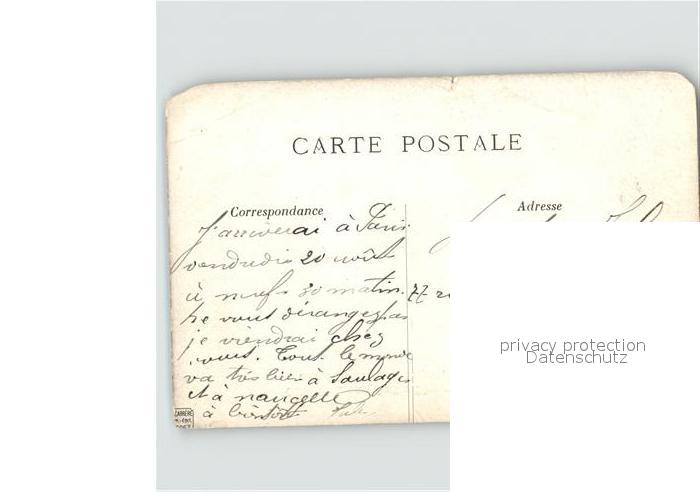 CARTE POSTALE
Correspondance
Adresse
J'arriverai à Paris
vendredi 20 août
à neuf 30 matin. 77
ne vous dérangez pas
je viendrai chez
vous. Tout le monde
va très bien à Saulages
et à naucelle
à bientôt
privacy protection
Datenschutz
CARRERE